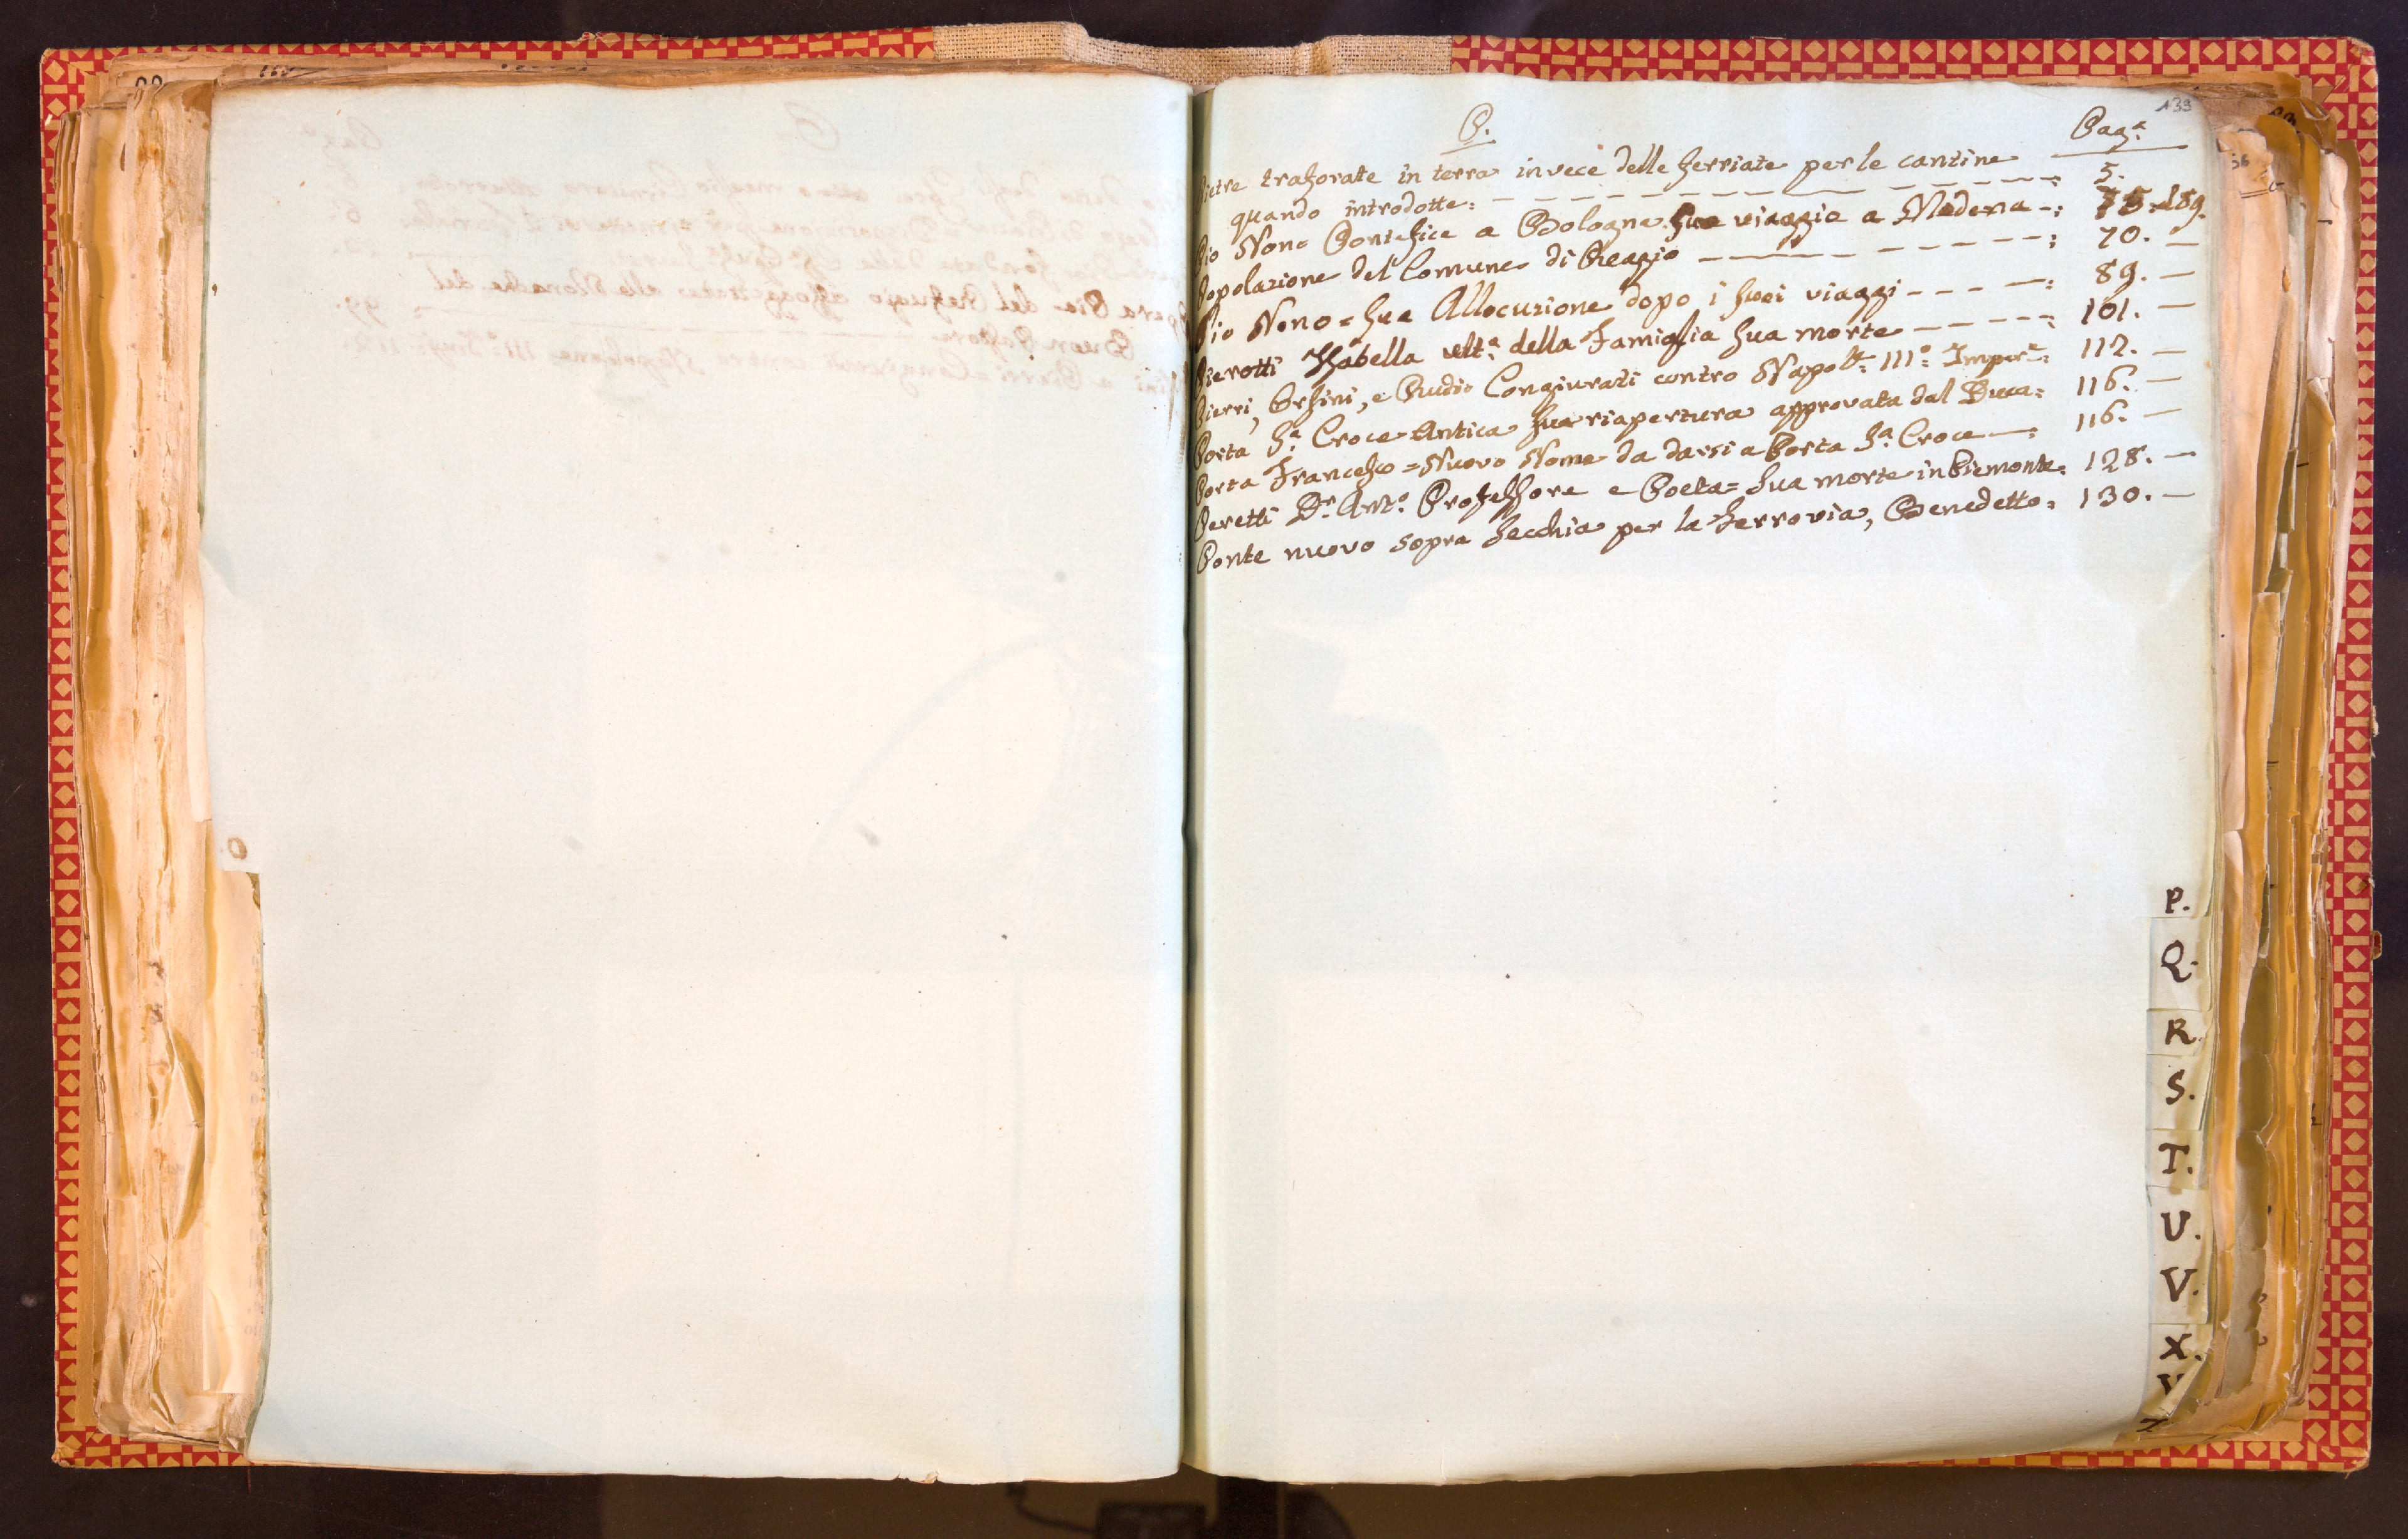 139
P.
Pag.ª
Pietre traforate in terra invece delle ferriate per le cantine
quando introdotte: 5.
Pio Nono Pontefice a Bologna Suo viaggio a Modena -: 89.
Popolazione del Comune di Reggio -: 70. —
Pio Nono = Sua Allocuzione dopo i suoi viaggi - - - -: 89. —
Pierotti Isabella ult.ª della Famiglia Sua morte - - - -: 101. —
Pierri, Orsini, e Rudio Congiurati contro Napol.ne III.º Imper.e: 112. —
Porta S.ª Croce Antica Sua riapertura approvata dal Duca: 116. —
Porta Francesco = Nuovo Nome da darsi a Porta S.ª Croce —: 116. —
Peretti D.r Ant.º Professore e Poeta = Sua morte in Piemonte: 128. —
Ponte nuovo sopra Secchia per la Ferrovia, Benedetto: 130. —
O
P.
Q.
R.
S.
T.
U.
V.
X.